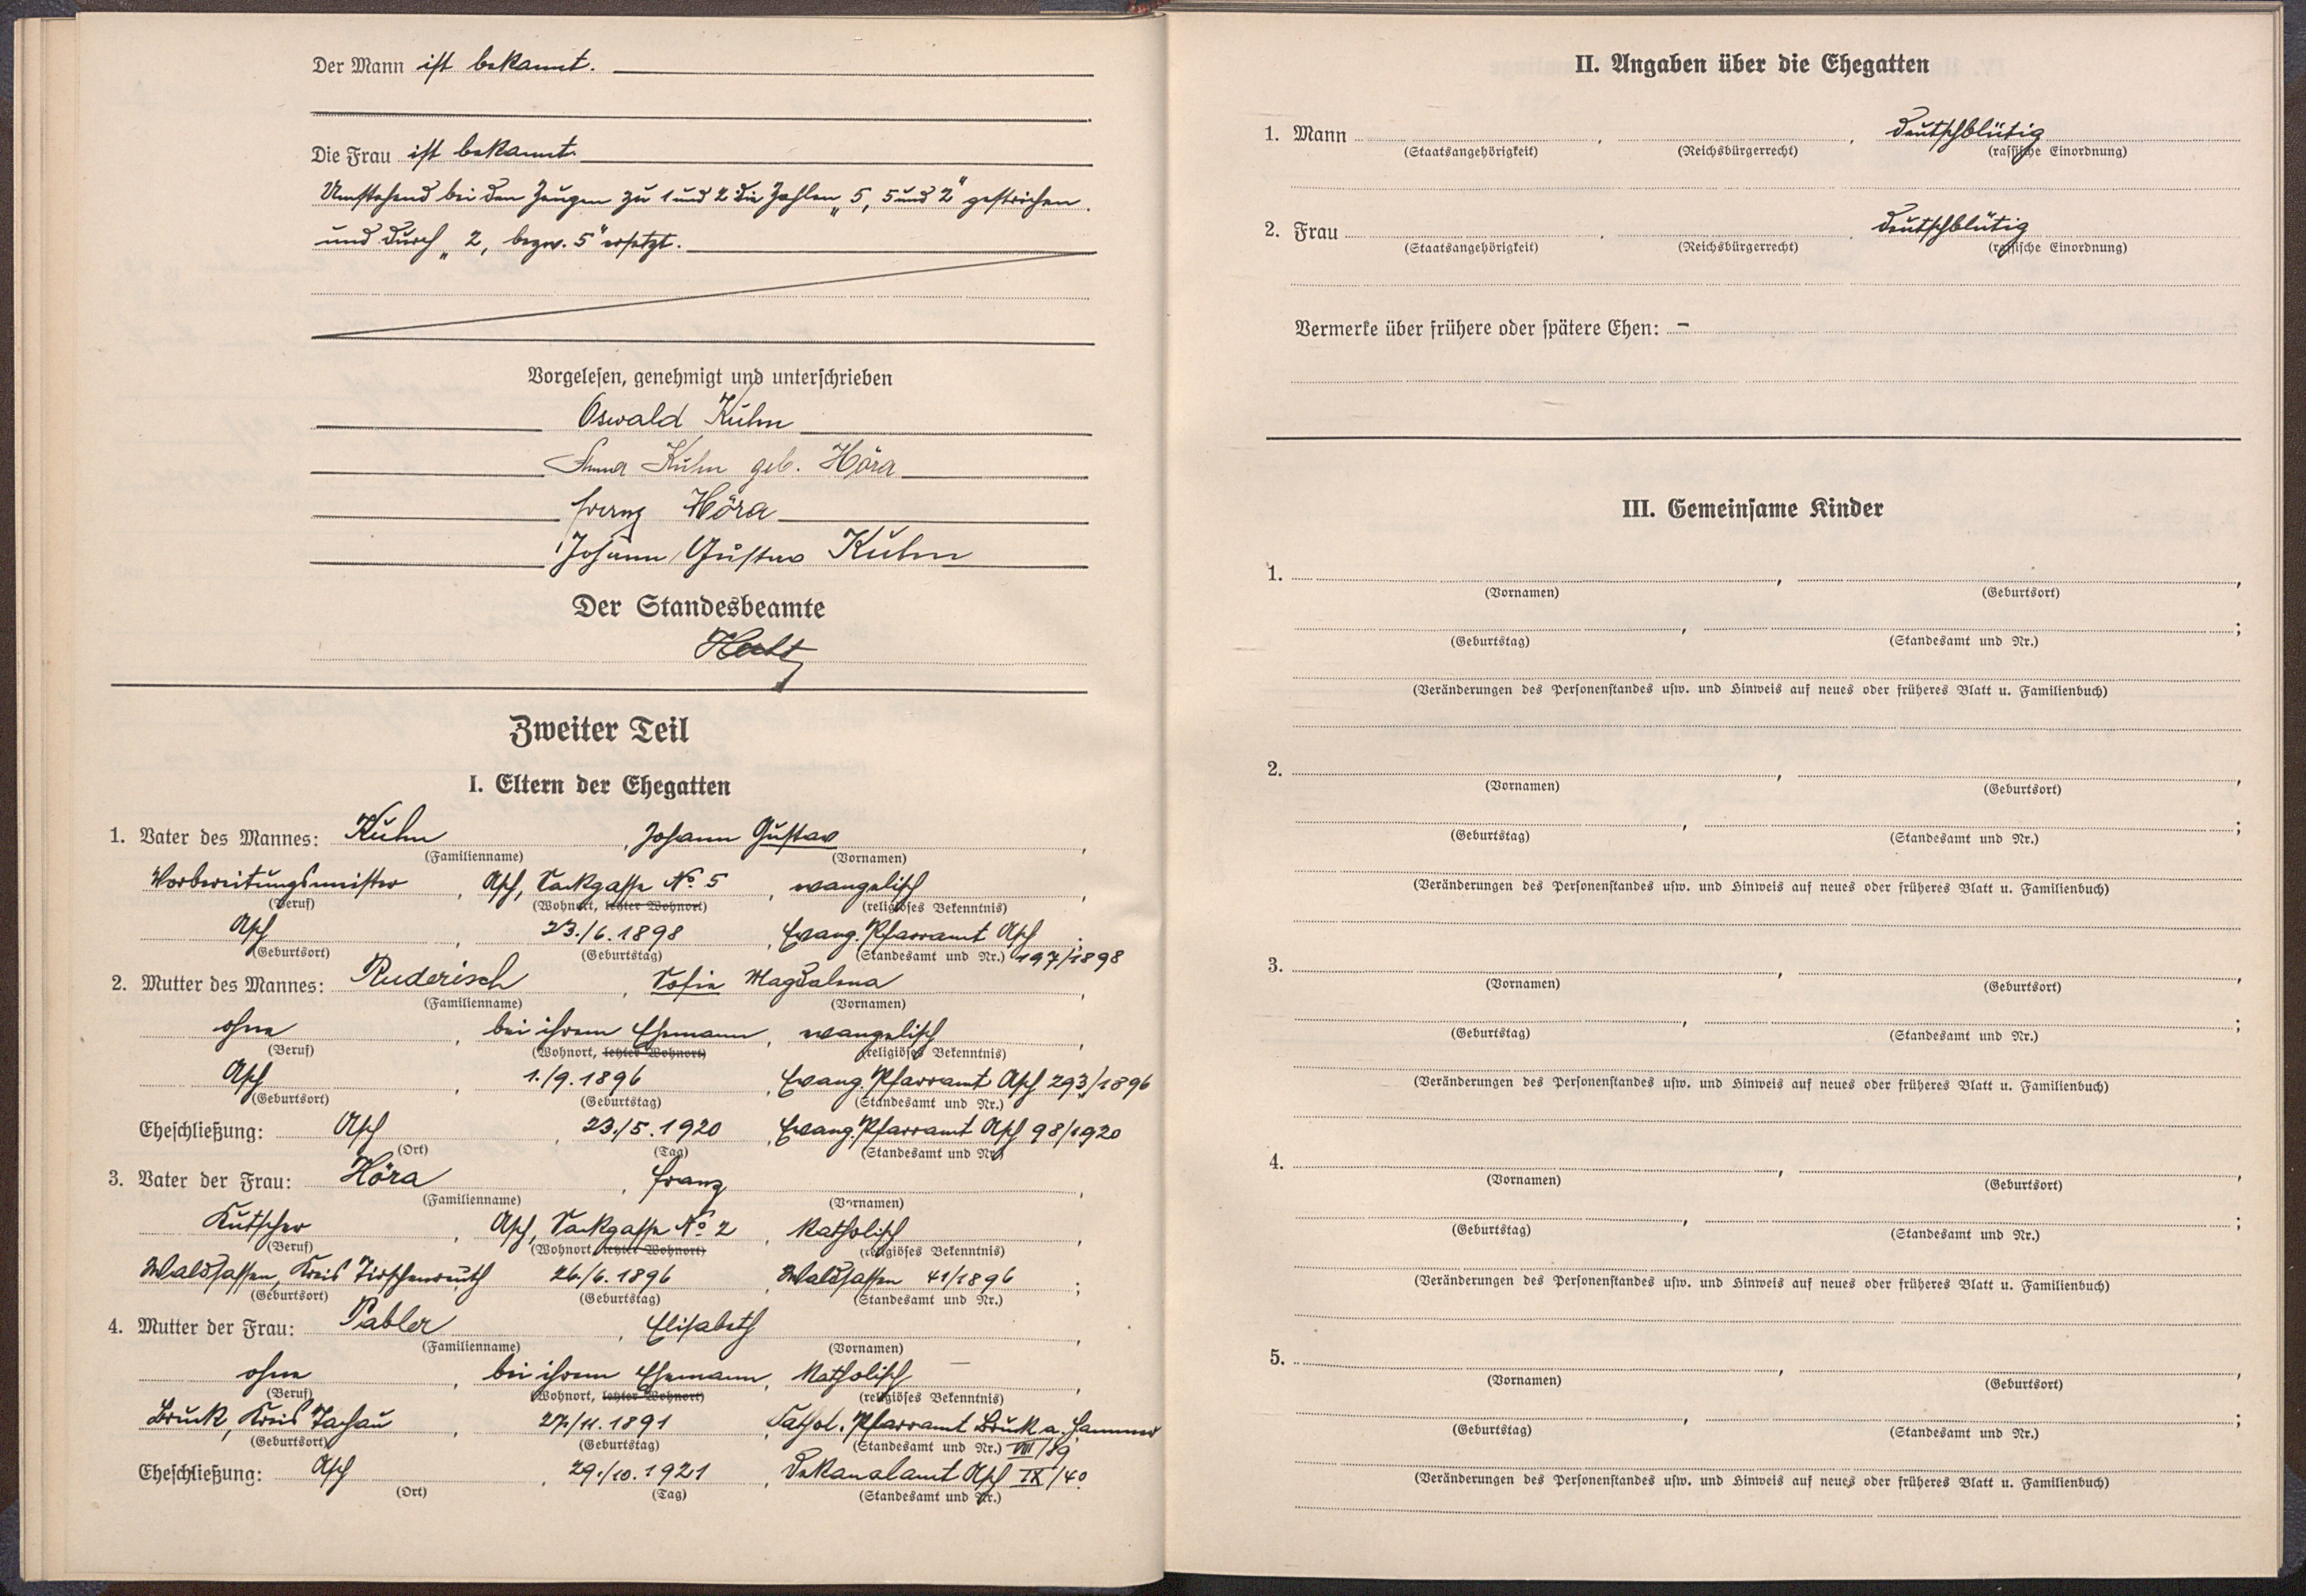 Der Mann ist bekannt.
Die Frau ist bekannt.
Umstehend bei den Zeugen zu 1 und 2 die Zahlen „5, 5 und 2" gestrichen
und durch „2, bezw. 5" ersetzt.
Vorgelesen, genehmigt und unterschrieben
Oswald Kuhn
Anna Kuhn geb. Höra
Franz Höra
Johann Gustav Kuhn
Der Standesbeamte
Zweiter Teil
I. Eltern der Ehegatten
1. Vater des Mannes: Kuhn, Johann Gustav,
(Familienname) (Vornamen)
Vorbereitungsmeister, Asch, Sackgasse No. 5, evangelisch,
(Beruf) (Wohnort, letzter Wohnort) (religiöses Bekenntnis)
Asch, 23./6.1898, Evang. Pfarramt Asch;
(Geburtsort) (Geburtstag) (Standesamt und Nr.) 197/1898
2. Mutter des Mannes: Ruderisch, Sofie Magdalena,
(Familienname) (Vornamen)
ohne, bei ihrem Ehemann, evangelisch,
(Beruf) (Wohnort, letzter Wohnort) (religiöses Bekenntnis)
Asch, 1./9.1896, Evang. Pfarramt Asch 293/1896
(Geburtsort) (Geburtstag) (Standesamt und Nr.)
Eheschließung: Asch, 23./5.1920, Evang. Pfarramt Asch 98/1920
(Ort) (Tag) (Standesamt und Nr.)
3. Vater der Frau: Höra, Franz,
(Familienname) (Vornamen)
Kutscher, Asch, Sackgasse No. 2, katholisch,
(Beruf) (Wohnort, letzter Wohnort) (religiöses Bekenntnis)
Waldsassen, Kreis Tirschenreuth 26./6.1896, Waldsassen 41/1896;
(Geburtsort) (Geburtstag) (Standesamt und Nr.)
4. Mutter der Frau: Pabler, Elisabeth,
(Familienname) (Vornamen)
ohne, bei ihrem Ehemann, katholisch,
(Beruf) (Wohnort, letzter Wohnort) (religiöses Bekenntnis)
Bruck, Kreis Tachau, 27./11.1891, Kathol. Pfarramt Bruck a. Hammer
(Geburtsort) (Geburtstag) (Standesamt und Nr.) VIII/89
Eheschließung: Asch, 29./10.1921, Dekanalamt Asch IX/40
(Ort) (Tag) (Standesamt und Nr.)
II. Angaben über die Ehegatten
1. Mann , , deutschblütig
(Staatsangehörigkeit) (Reichsbürgerrecht) (rassische Einordnung)
2. Frau , , deutschblütig
(Staatsangehörigkeit) (Reichsbürgerrecht) (rassische Einordnung)
Vermerke über frühere oder spätere Ehen: –
III. Gemeinsame Kinder
1. , ,
(Vornamen) (Geburtsort)
, ;
(Geburtstag) (Standesamt und Nr.)
(Veränderungen des Personenstandes usw. und Hinweis auf neues oder früheres Blatt u. Familienbuch)
2. , ,
(Vornamen) (Geburtsort)
, ;
(Geburtstag) (Standesamt und Nr.)
(Veränderungen des Personenstandes usw. und Hinweis auf neues oder früheres Blatt u. Familienbuch)
3. , ,
(Vornamen) (Geburtsort)
, ;
(Geburtstag) (Standesamt und Nr.)
(Veränderungen des Personenstandes usw. und Hinweis auf neues oder früheres Blatt u. Familienbuch)
4. , ,
(Vornamen) (Geburtsort)
, ;
(Geburtstag) (Standesamt und Nr.)
(Veränderungen des Personenstandes usw. und Hinweis auf neues oder früheres Blatt u. Familienbuch)
5. , ,
(Vornamen) (Geburtsort)
, ;
(Geburtstag) (Standesamt und Nr.)
(Veränderungen des Personenstandes usw. und Hinweis auf neues oder früheres Blatt u. Familienbuch)